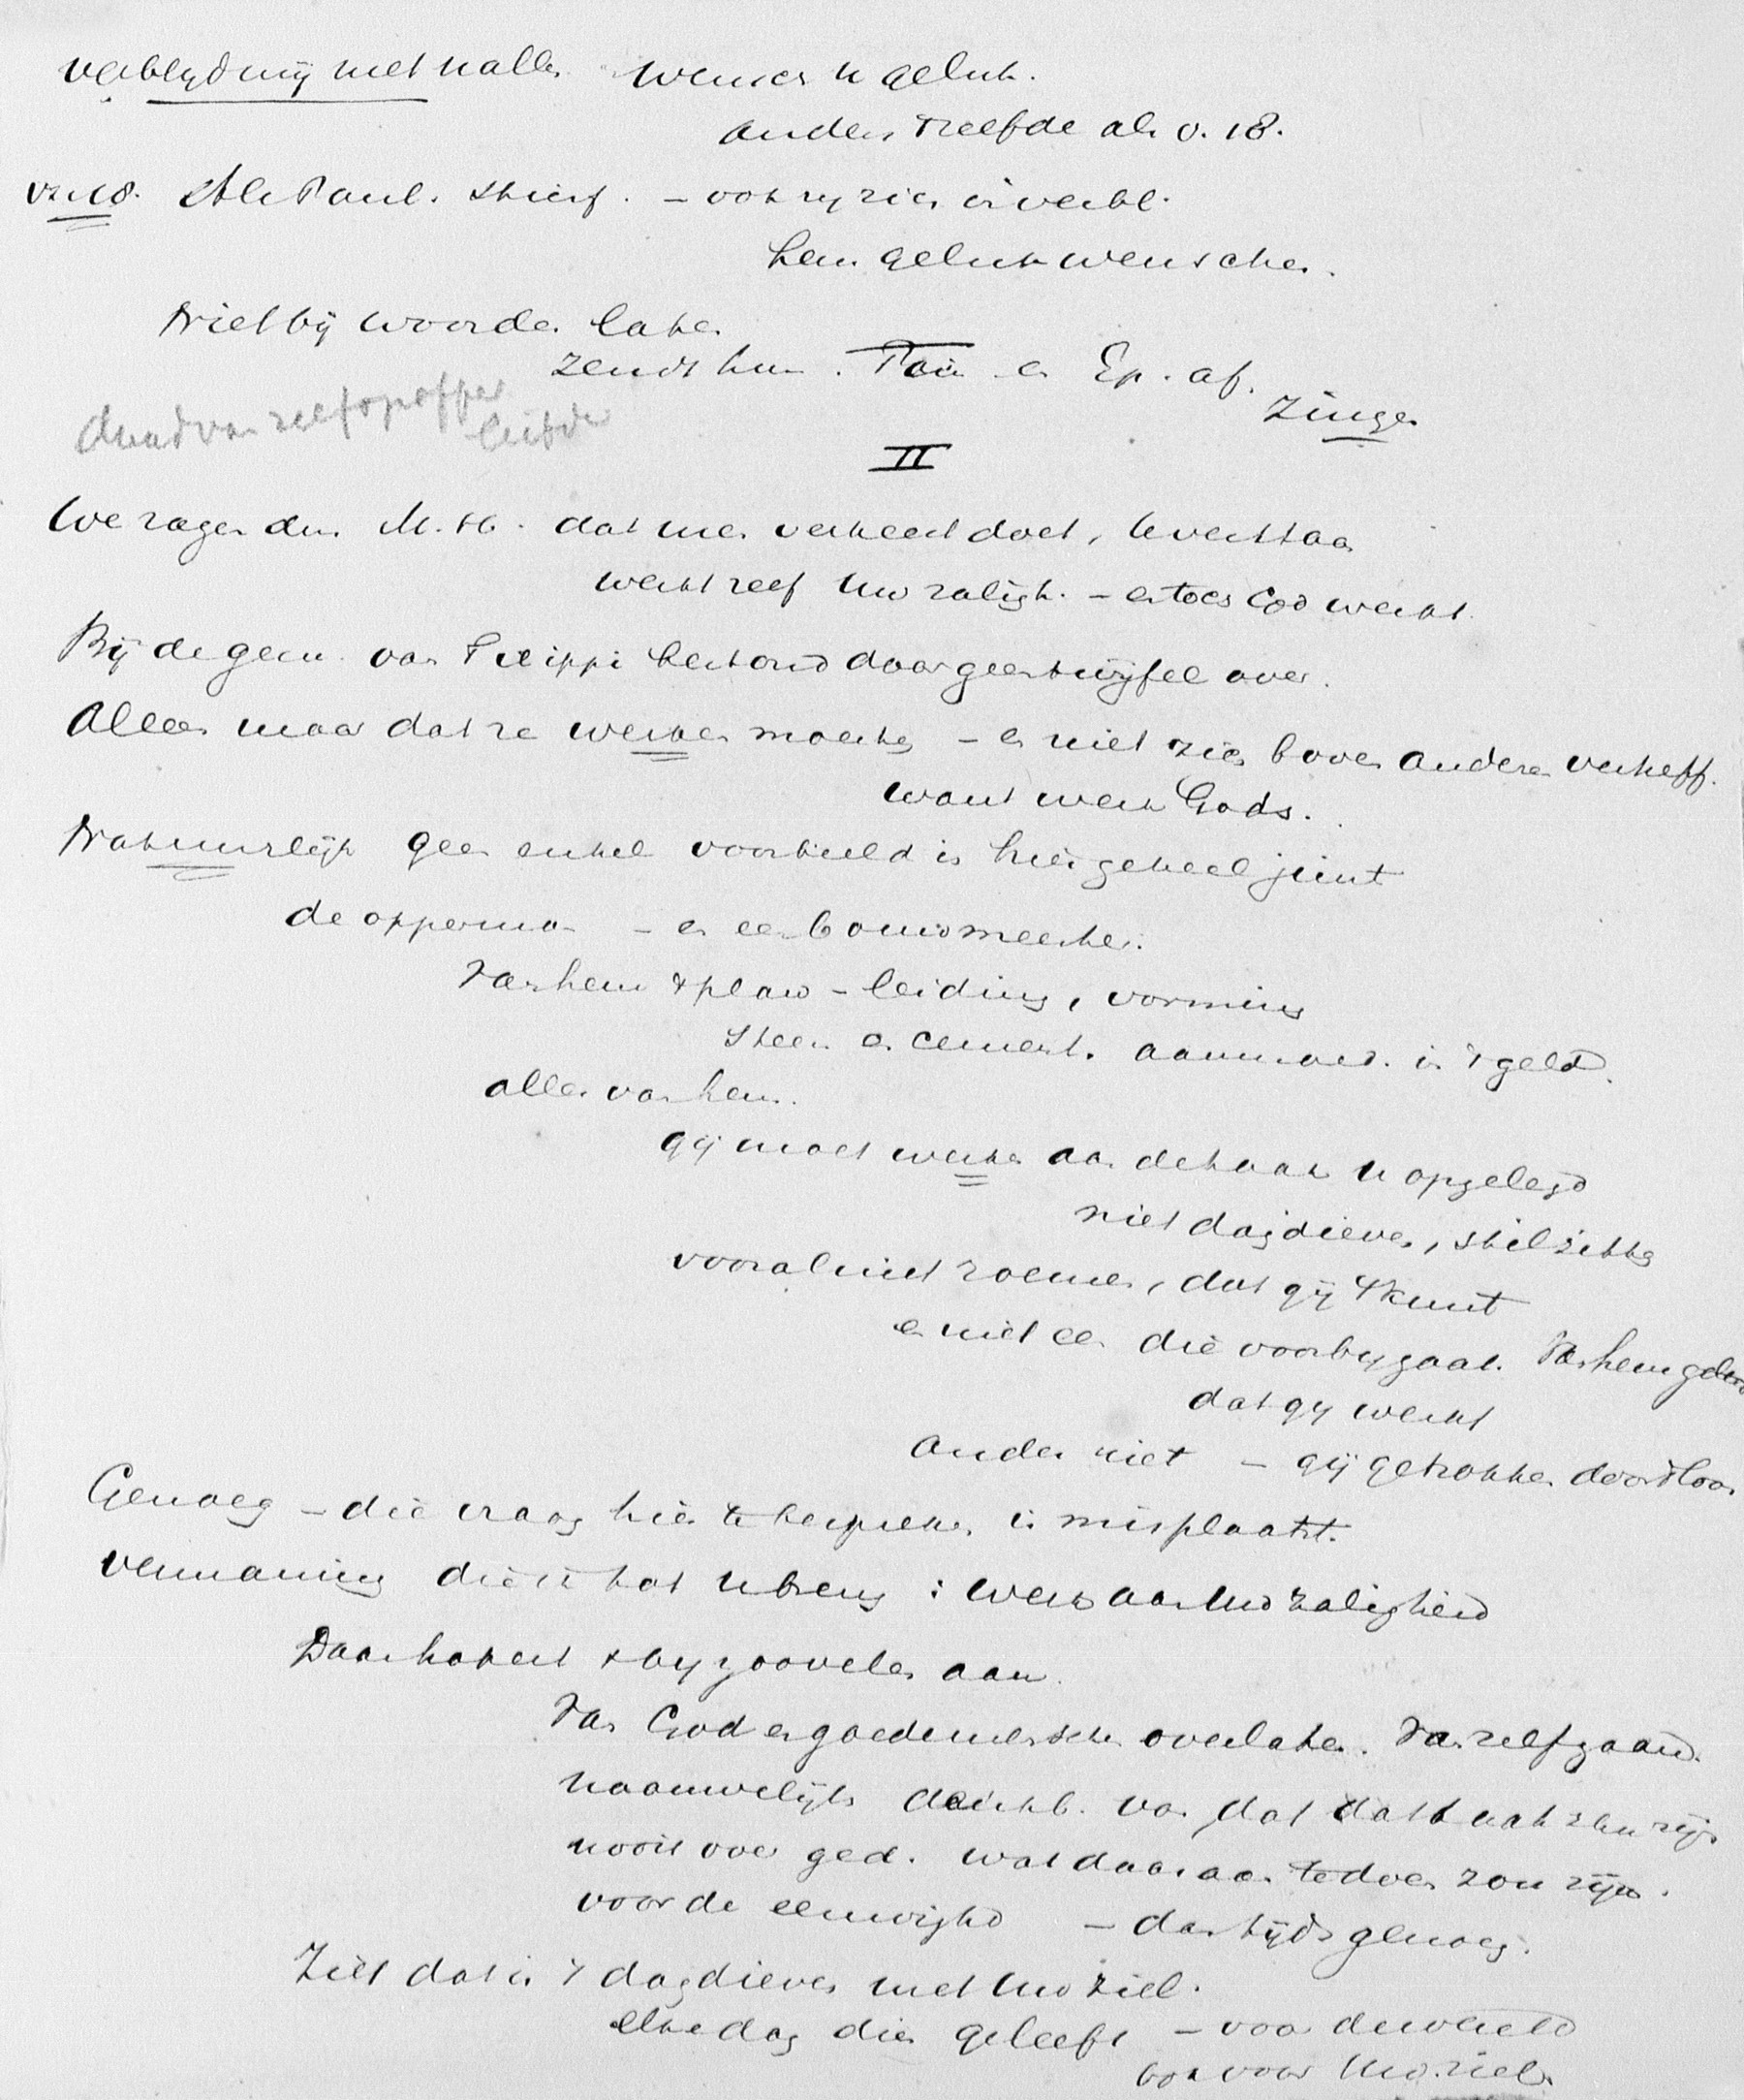 verblyding met u alle. Wensch u geluk.
anders Treefde als v. 18.
vs 18. Als Paul. stierf. – ook zy zich verbl.
hem geluk wenschen.
Niet bij woorden laten
zendt hun. Tim en Ep. af.
Zingen
daad van zelfopoffer
liefde
II
We zagen dus M. H. dat men verkeerd doet, te verstaan
werkt zelf uw zaligh. – en toch God werkt.
Bij de gem. van Filippi bestond daar geen twijfel over.
Alleen maar dat ze werken moesten – en niet zich boven anderen verheff.
want werk Gods.
Natuurlijk geen enkel voorbeeld is hier geheel juist
de opperman – en een bouwmeester.
Van hem 't plan – leiding, vorming
steen en cement. in 't geld.
alles van hem.
gij moet werken aan de taak u opgelegd
niet dagdieven, stil zitten
vooral niet roemen, dat gij 't kunt
en niet een die voorbygaat. Van hem
dat gy werkt
anders niet – gij getrokken door 't loon
Genoeg – die vraag hier te bespreken is misplaatst.
vermaning die ik tot u breng : Werk aan Uw zaligheid
Daar hapert 't by zoovelen aan.
Van God en goede menschen overlaten. Van zelf gaand.
nauwelijks denkb. van dat dat taak zou zijn
nooit over ged. wat daaraan te doen zou zijn.
voor de eeuwighd – dan tijds genoeg.
Ziet dat is 't dagdieven met Uw ziel.
elke dag dien geleeft – voor de wereld
ook voor Uw ziel.